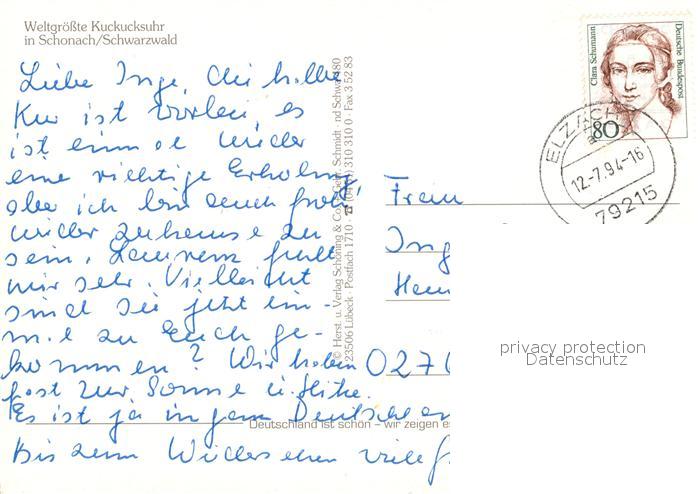 Weltgrößte Kuckucksuhr
in Schonach/Schwarzwald
Liebe Inge, die halbe
Kur ist vorbei, es
ist einmal wieder
eine richtige Erholung,
aber ich bin auch froh,
wieder zuhause zu
sein. fehlt
mir sehr. Vielleicht
sind Sie jetzt ein-
mal zu Euch ge-
kommen? Wir haben
fast nur Sonne u. Hitze.
Es ist ja in ganz Deutschland
Bis zum Wiedersehen viele
© Herst. u. Verlag Schöning & Co + Gebr. Schmidt
23506 Lübeck · Postfach 1710 · 310 310 0 · Fax 3 52 83
Deutschland ist schön – wir zeigen es
Clara Schumann
Deutsche Bundespost
80
ELZACH
12.-7.94-16
79215
Frau
Ing
0276
privacy protection
Datenschutz